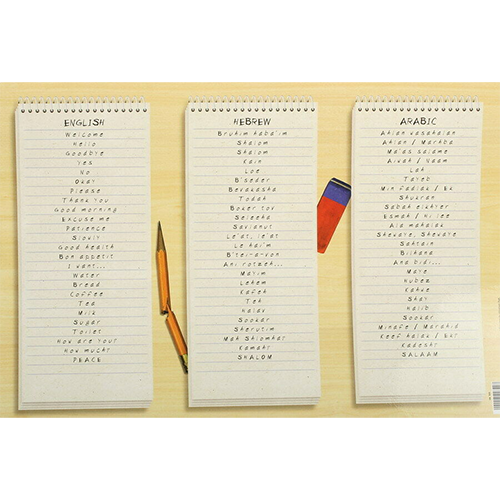 ENGLISH
Welcome
Hello
Goodbye
Yes
No
Okay
Please
Thank you
Good morning
Excuse me
Patience
Slowly
Good health
Bon appetit
I want...
Water
Bread
Coffee
Tea
Milk
Sugar
Toilet
How are you?
How much?
PEACE
HEBREW
Bruhim haba'im
Shalom
Shalom
Kain
Loe
B'seder
Bevakasha
Todah
Boker tov
Seleeha
Savlanut
Le'at, le'at
Le hai'm
B'tei-a-von
Ani rotzeh...
Mayim
Lehem
Kafeh
Teh
Halav
Sookar
Sherutim
Mah Shlomha?
Kamah?
SHALOM
ARABIC
Ahlan wasahalan
Ahlan / Marhba
Ma'as salame
Aiwah / Naam
Lah
Tayeb
Min fadlak / Ek
Shukran
Sabah elkhter
Esmah / ni lee
Ala mahalak
Shwaye, Shwaye
Sahtein
Bilhana
Ana bidi...
Maye
Hubez
Kahwe
Shay
Halib
Sookar
Minafe / Marahid
Keef halak / Ek?
Kadesh?
SALAAM